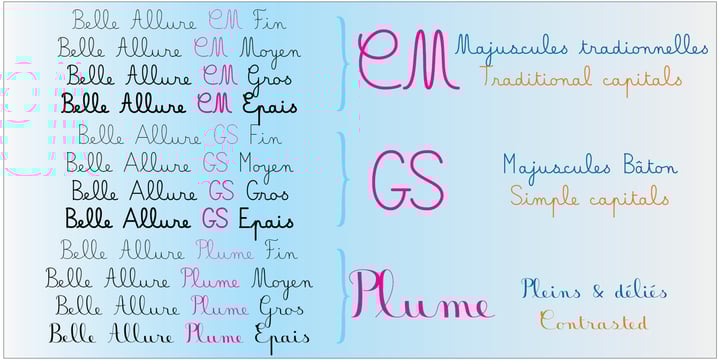 Belle Allure CM Fin
Belle Allure CM Moyen
Belle Allure CM Gros
Belle Allure CM Epais
CM
Majuscules tradionnelles
Traditional capitals
Belle Allure GS Fin
Belle Allure GS Moyen
Belle Allure GS Gros
Belle Allure GS Epais
GS
Majuscules Bâton
Simple capitals
Belle Allure Plume Fin
Belle Allure Plume Moyen
Belle Allure Plume Gros
Belle Allure Plume Epais
Plume
Pleins & déliés
Contrasted